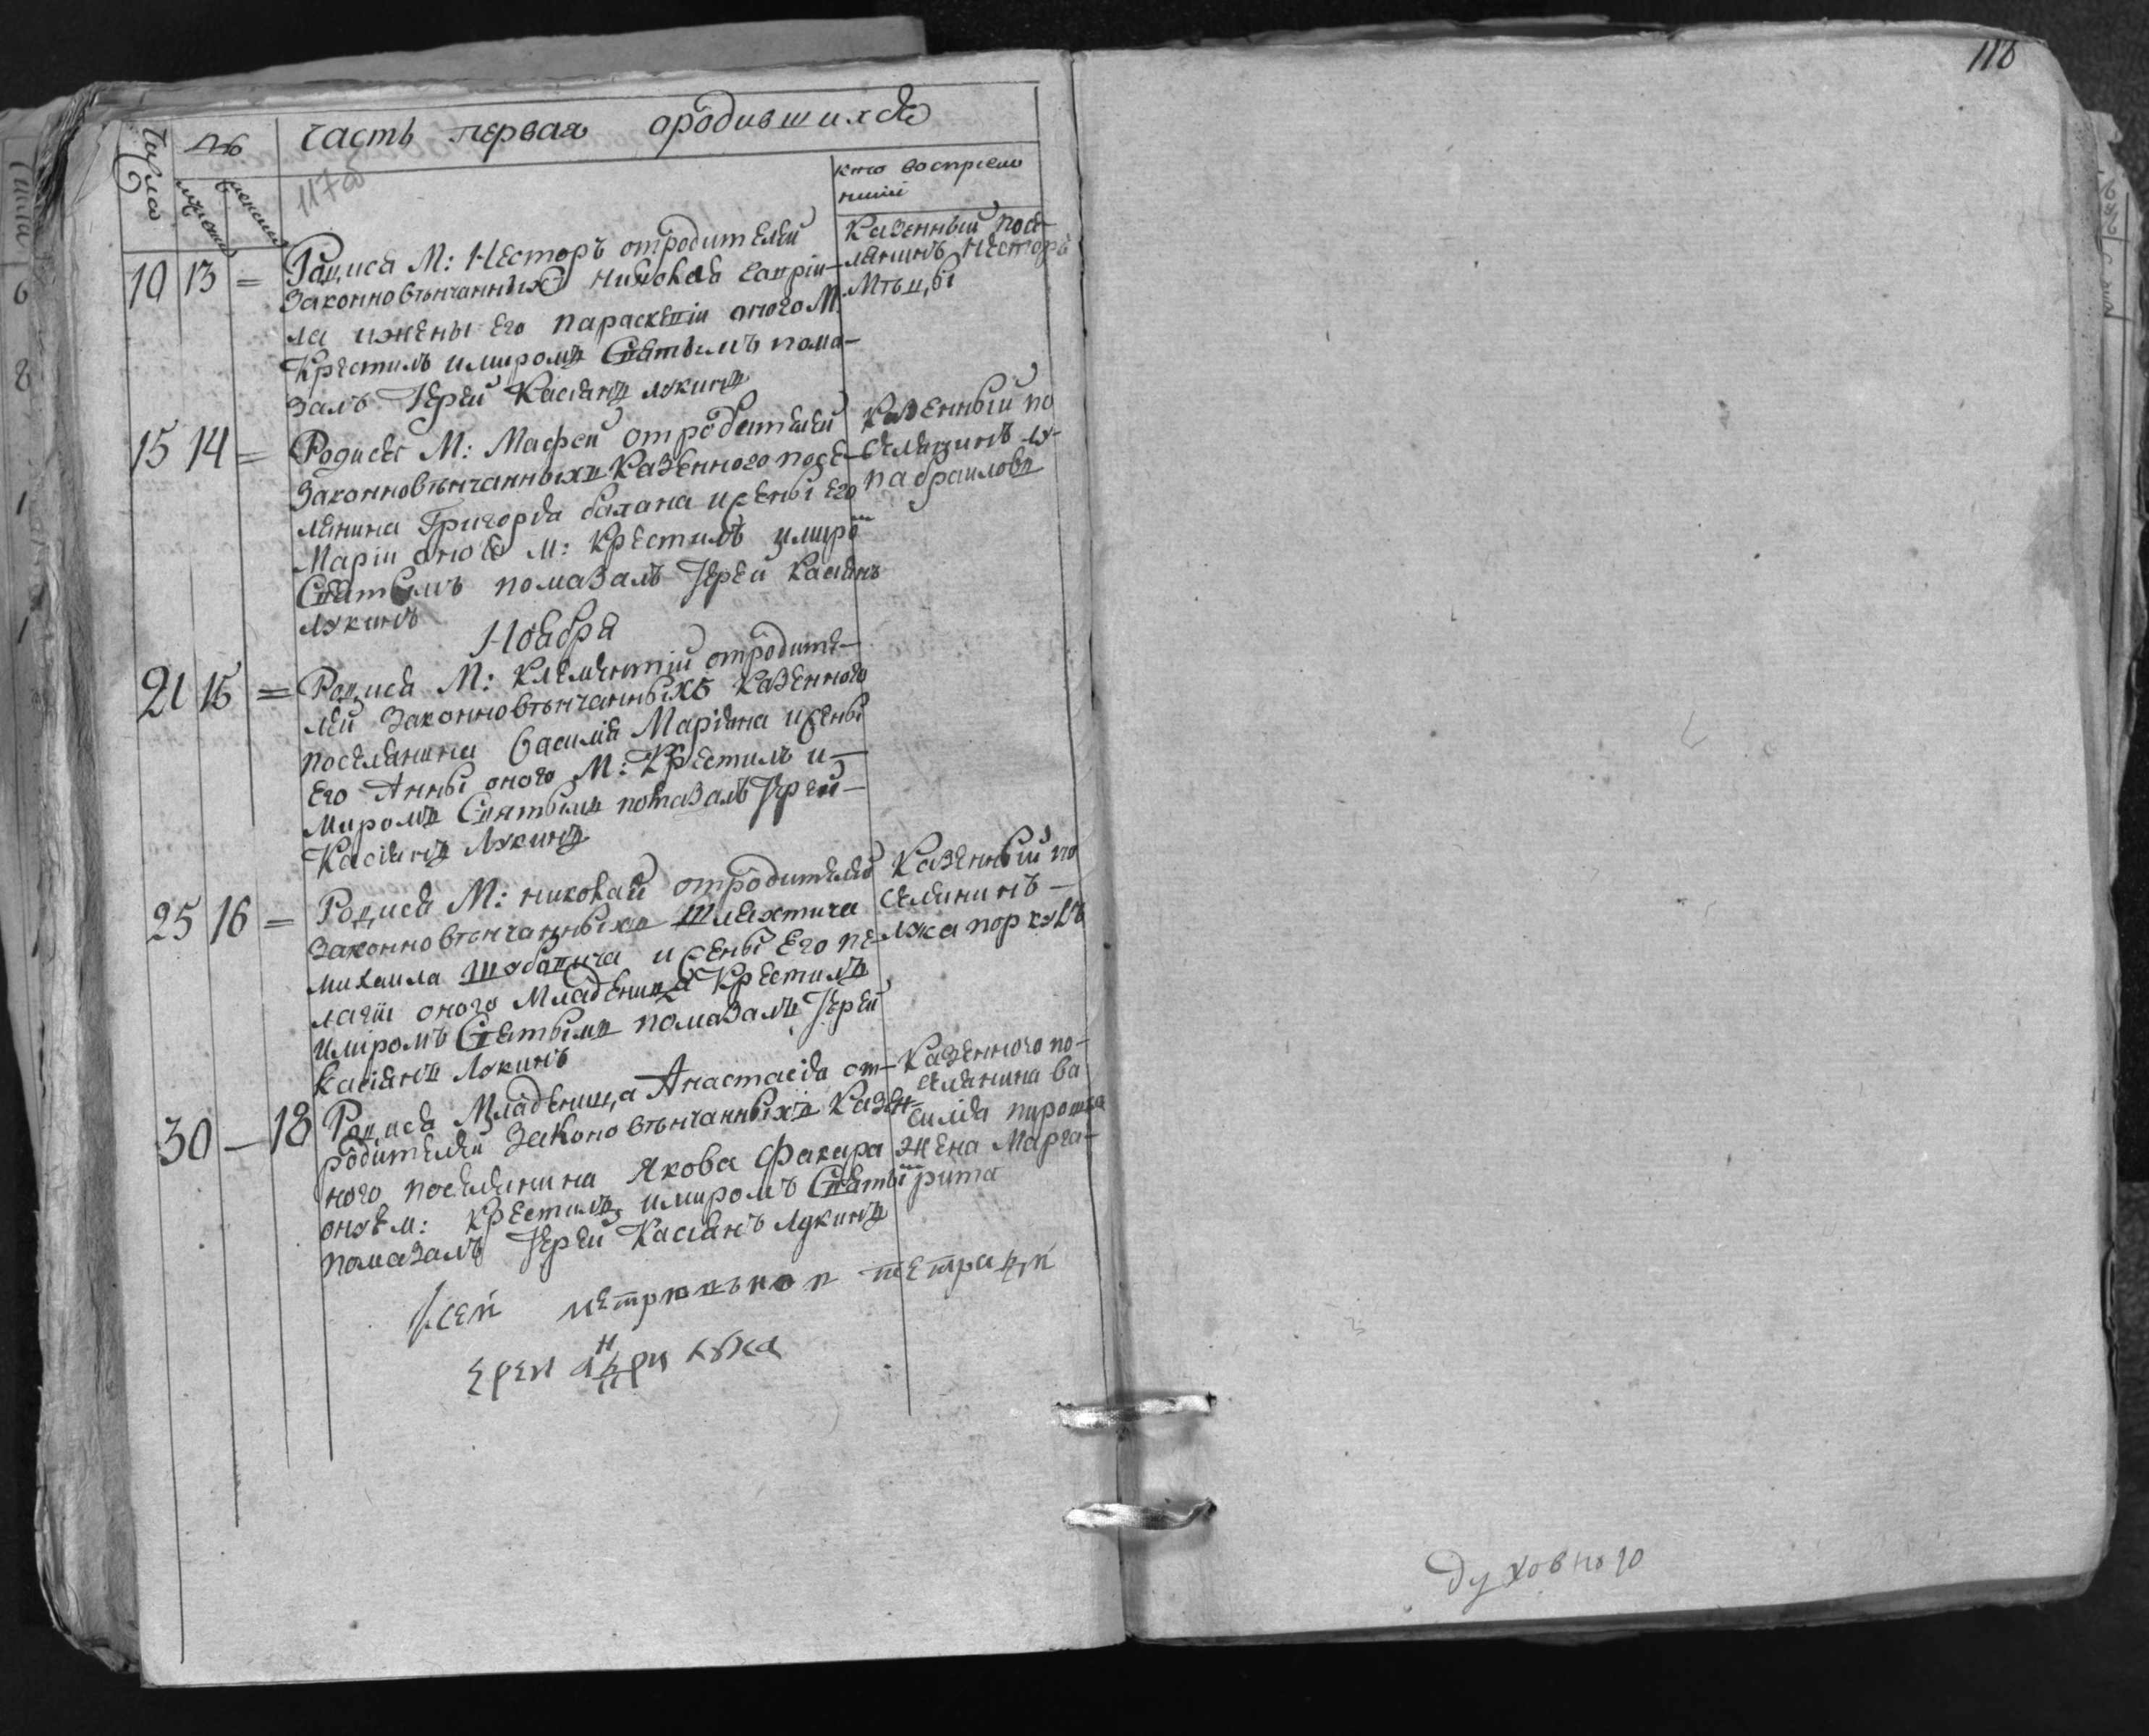 118
часть первая ородившихся
Числа
№
мужеска
женска
117об
кто восприем
ники
10 13 = Родиса М: Несторъ отродителей
законновѣнчанныхъ Николая гаврїи-
ла ижены Его параскевїи оного М:
Крестилъ имиромъ Святымъ пома-
залъ Іерей Касїянъ Лукинъ
Казенный посе-
лянинъ Несторъ
15 14 = Родися М: Мафей отродителей
Законновѣнчанныхъ Казенного посе-
лянина Григоря балана ижены Его
Марїи оного М: Крестилъ имиро
Святымъ помазалъ Іерей Касїянъ
Лукинъ
Казенный по
селянинъ лу-
па браиловъ
Ноября
21 15 = Родиса М: Клементїй отродите-
лей Законновѣнчанныхъ Казенного
поселянина Василїя Марїяна ижены
Его Анны оного М: Крестилъ и-
Миромъ Святымъ помазалъ Іерей-
Касїянъ Лукинъ
25 16 = Родися М: николай отродителей
Законновѣнчанныхъ Шляхтича
михаила ижены Его пе-
лагїи оного Младенца Крестилъ
имїромъ Святымъ помазалъ Іерей
Касїянъ Лукинъ
Казенный по
селянинъ-
лука поркулъ
30 - 18 Родиса Младеница Анастасїя от-
родителей Законовѣнчанныхъ Казен-
ного поселянина Якова Факира
онуъм: Крестилъ имиромъ Святы
помазалъ Іерей Касїянъ Лукинъ
Казенного по-
селянина Ва
силїя пирожка
Жена Марга-
рита
Ксей тетради
ерей
Духовного